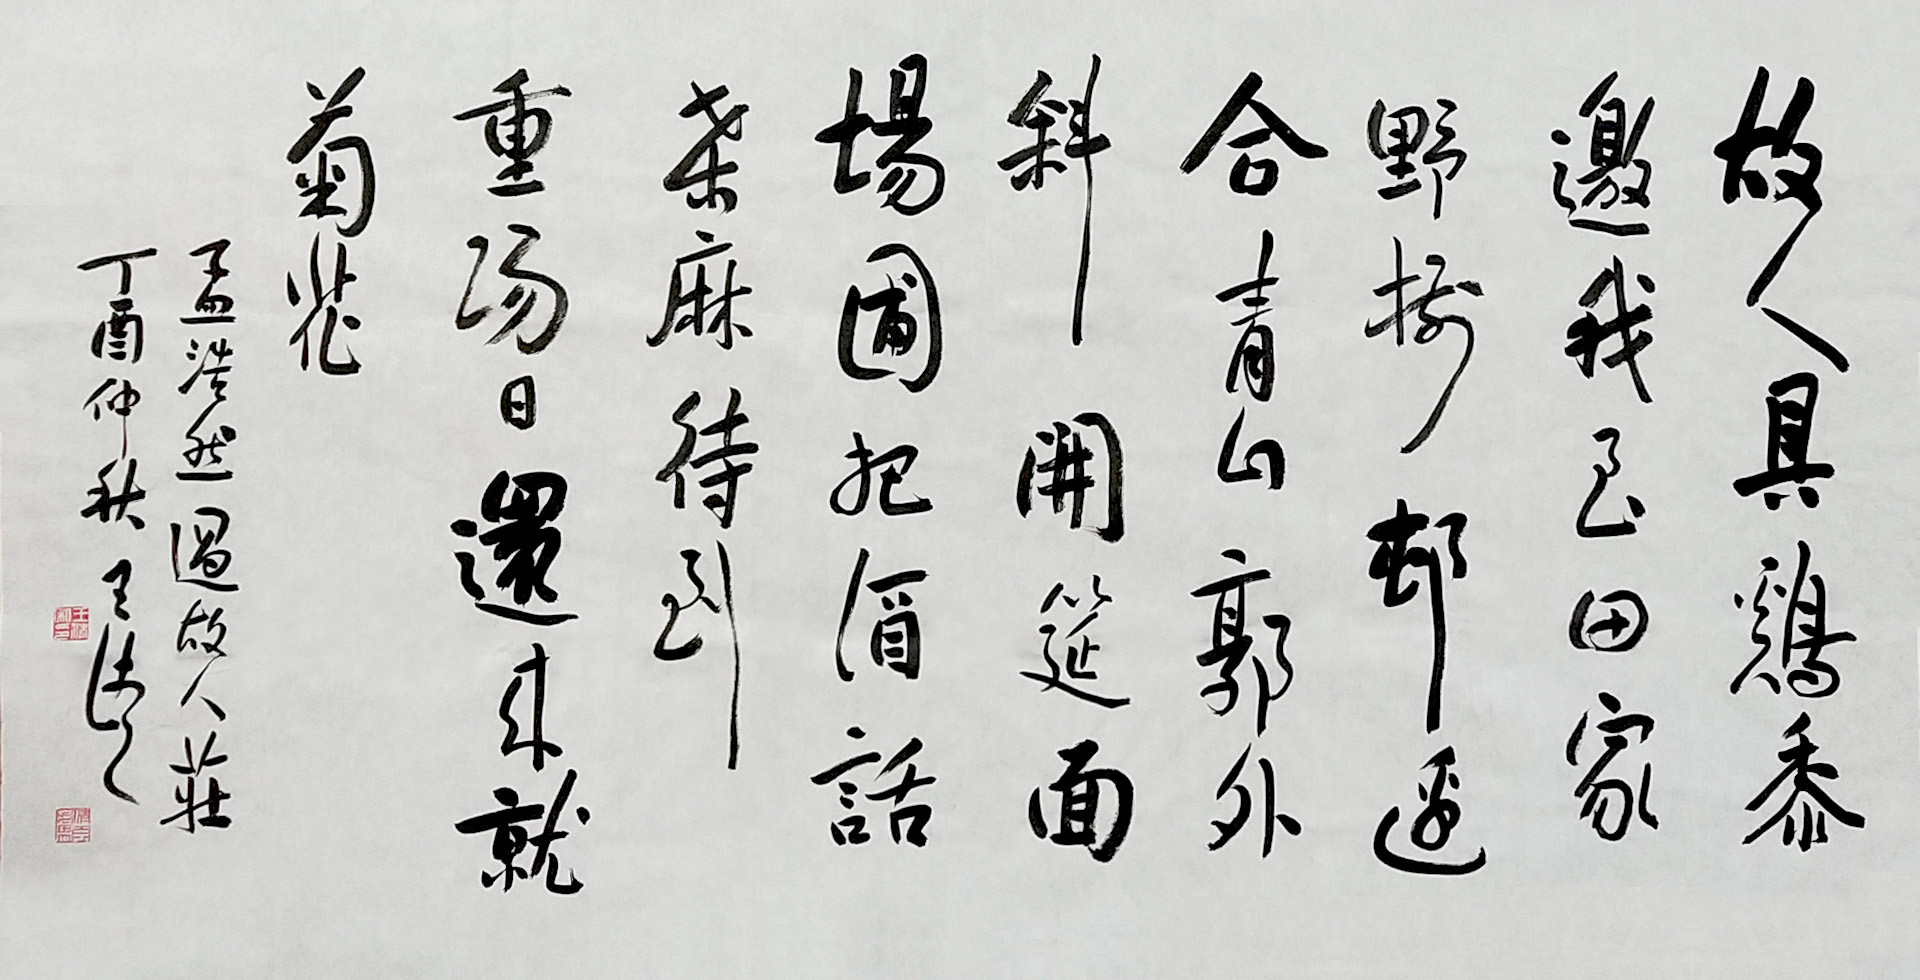 故人具鷄黍
邀我至田家
野樹邨邊
合青山郭外
斜開筵面
場圃把酒話
桑麻待到
重陽日還来就
菊花
孟浩然過故人莊
丁酉仲秋王